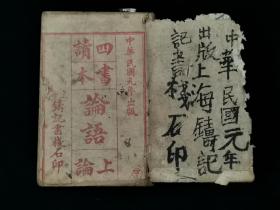 中華民國元年出版
四書
讀本
論語
上
論
鑄記書棧石印
中華民國元年
出版上海鑄記
記書棧石印